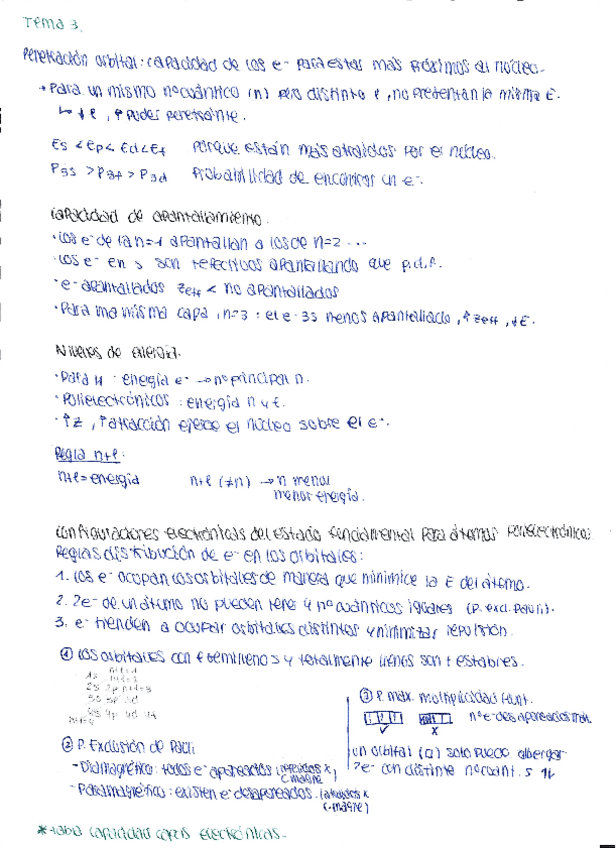 Tema 3.
Penetración orbital: capacidad de los e- para estar más próximos al núcleo.
→ Para un mismo nº cuántico (n) pero distinto ℓ, no presentan la misma E.
↳ ↓ℓ, ↑ poder penetrante.
Es < Ep < Ed < Ef porque están más atraídos por el núcleo.
P3s > P3p > P3d Probabilidad de encontrar un e-.
Capacidad de apantallamiento.
· Los e- de la n=1 apantallan a los de n=2 ...
· Los e- en s son + efectivos apantallando que p.d.f.
· e- apantallados Zeff < no apantallados
· Para una misma capa, n=3: el e- 3s menos apantallado, ↑Zeff, ↓E.
Niveles de energía.
· Para H energía e- → nº principal n.
· Polielectrónicos: energía n y ℓ.
· ↑Z, ↑atracción ejerce el núcleo sobre el e-.
Regla n+ℓ:
n+ℓ = energía n+ℓ (≠n) → n menor
menor energía.
Configuraciones electrónicas del estado fundamental para átomos polielectrónicos
Reglas distribución de e- en los orbitales:
1. Los e- ocupan los orbitales de manera que minimice la E del átomo.
2. 2e- de un átomo no pueden tener 4 nº cuánticos iguales (P. excl. Pauli).
3. e- tienden a ocupar orbitales distintos y minimizar repulsión.
① Los orbitales con ℓ semillenos y totalmente llenos son + estables.
1s
2s 2p
3s 3p 3d
4s 4p 4d 4f
③ P. max. multiplicidad Hunt.
nº e- desapareados max.
✓ x
② P. Exclusión de Pauli
un orbital (a) solo puede albergar
2e- con distinto nº cuant. s 1↓
- Diamagnético: todos e- apareados (repelidos x
c. magne)
- Paramagnético: existen e- desapareados. (atraídos x
c. magne)
* tabla capacidad capas electrónicas.